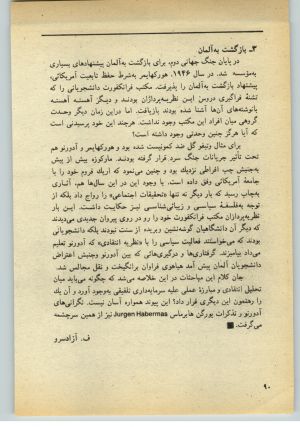 ۳ـ بازگشت به‌آلمان
در پایان جنگ جهانی دوم، برای بازگشت به‌آلمان پیشنهادهای بسیاری
به‌مؤسسه شد. در سال ۱۹۴۶، هورکهایمر به‌شرط حفظ تابعیت آمریکائی،
پیشنهاد بازگشت به‌آلمان را پذیرفت. مکتب فرانکفورت دانشجویانی را که
تشنهٔ فراگیری دروس این نظریه‌پردازان بودند و دیگر آهسته آهسته
با نوشته‌های آن‌ها آشنا شده بودند بازیافت. اما در این زمان دیگر وحدت
گروهی میان افراد این مکتب وجود نداشت. هرچند این خود پرسیدنی است
که آیا هرگز چنین وحدتی وجود داشته است؟
برای مثال ویتفو گل ضد کمونیست شده بود و هورکهایمر و آدورنو هم
تحت تأثیر جریانات جنگ سرد قرار گرفته بودند. مارکوزه بیش از پیش
به‌جنبش چپ افراطی نزدیك بود و چنین می‌نمود که اریك فروم خود را با
جامعهٔ آمریکائی وفق داده است. با وجود این در این سال‌ها هم، آثاری
به‌چاپ رسید که بار دیگر نه تنها «تحقیقات اجتماعی» را رواج داد بلکه از
توجه به‌فلسفهٔ سیاسی و زیبائی‌شناسی نیز حکایت داشت. این بار
نظریه‌پردازان مکتب فرانکفورت خود را رو در روی پیروان جدیدی می‌دیدند
که دیگر آن دانشگاهیان گوشه‌نشین وبریده از سنت نبودند بلکه دانشجویانی
بودند که می‌خواستند فعالیت سیاسی را با «نظریه انتقادی» که آدورنو تعلیم
می‌داد بیامیزند. گرفتاری‌ها و درگیری‌هائی که بین آدورنو وجنبش اعتراض
دانشجویان آلمان پیش آمد هیاهوی فراوان برانگیخت و نقل مجالس شد.
جان کلام این مباحثات در این خلاصه می‌شد که چگونه می‌باید میان
تحلیل انتقادی و مبارزهٔ عملی علیه سرمایه‌داری تلفیقی به‌وجود آورد و آن یك
را رهنمون این دیگری قرار داد؟ این پیوند همواره آسان نیست. نگرانی‌های
آدورنو و تذکرات یورگن هابرماس Jurgen Habermas نیز از همین سرچشمه
می‌گرفت. ■
ف. آزادسرو
۹۰